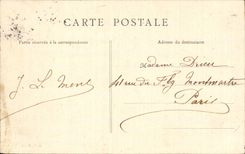 CARTE POSTALE
Partie réservée à la correspondance
Adresse du destinataire
Madame
rue du Fbg Montmartre
Paris
J. Le